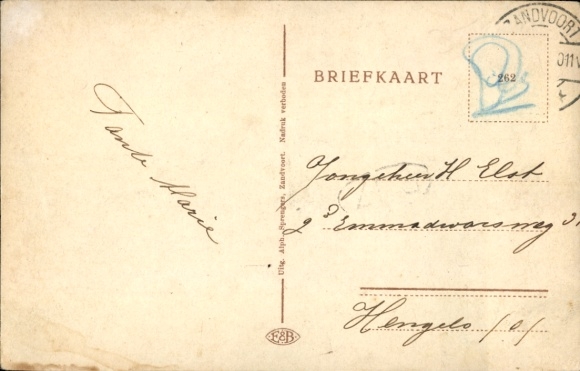 ZANDVOORT
BRIEFKAART
262
Tante Marie
Uitg. Alph. Sprengers, Zandvoort. Nadruk verboden
Jongeheer H Elst
Emmadwarsweg
Hengelo /O/
E&B